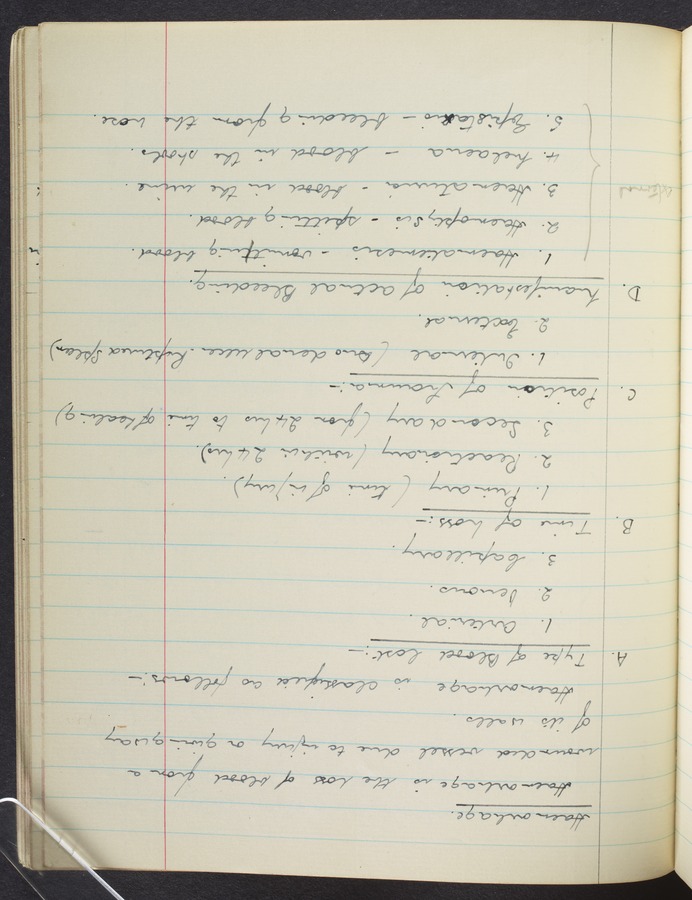 Haemorhage.
Haemorhage is the loss of blood from a
wounded vessel due to injury or giving way
of its walls.
Haemorhage is classified as follows:-
A. Type of Blood Lost:-
1. Arterial.
2. Venous.
3. Capillary.
B. Time of Loss:-
1. Primary (time of injury).
2. Reactionary (within 24 hrs).
3. Secondary (from 24 hrs to time of healing)
C. Position of Trauma:-
1. Internal ( ulcer. Ruptured Spleen)
2. External.
D. Manifestation of actual Bleeding.
1. Haematemesis - vomiting blood.
2. Haemoptysis - spitting blood.
3. Haematuria - blood in the urine.
4. Melaena - blood in the stools.
5. Epistaxis - bleeding from the nose.
external